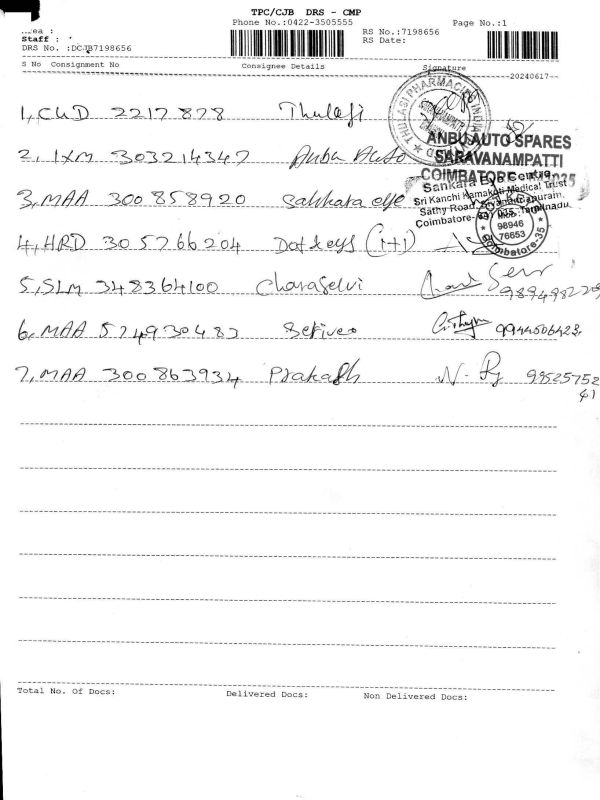 TPC/CJB DRS - CMP
Phone No.:0422-3505555 Page No.:1
Area :
Staff :
DRS No. :DCJB7198656
RS No.:7198656
RS Date:
S No Consignment No Consignee Details Signature
20240617
1, CHD 2217878 Thulasi
THULASI PHARMACIES INDIA
ANBU AUTO SPARES
SARAVANAMPATTI
COIMBATORE
2, IXM 303214347 Anbu Auto
3, MAA 300858920 Sankara eye
Sankara Eye Centre
Sri Kanchi Kamakoti Medical Trust
Sathy Road, Sivanandapuram,
Coimbatore-641 035, Tamilnadu.
4, HRD 305766204 Dot keys (1+1)
98946
76653
Coimbatore-35
5, SLM 348364100 Charaselvi
6, MAA 574930483 9944506423
7, MAA 300863934 Prakash N. 99525752
61
Total No. Of Docs: Delivered Docs: Non Delivered Docs: